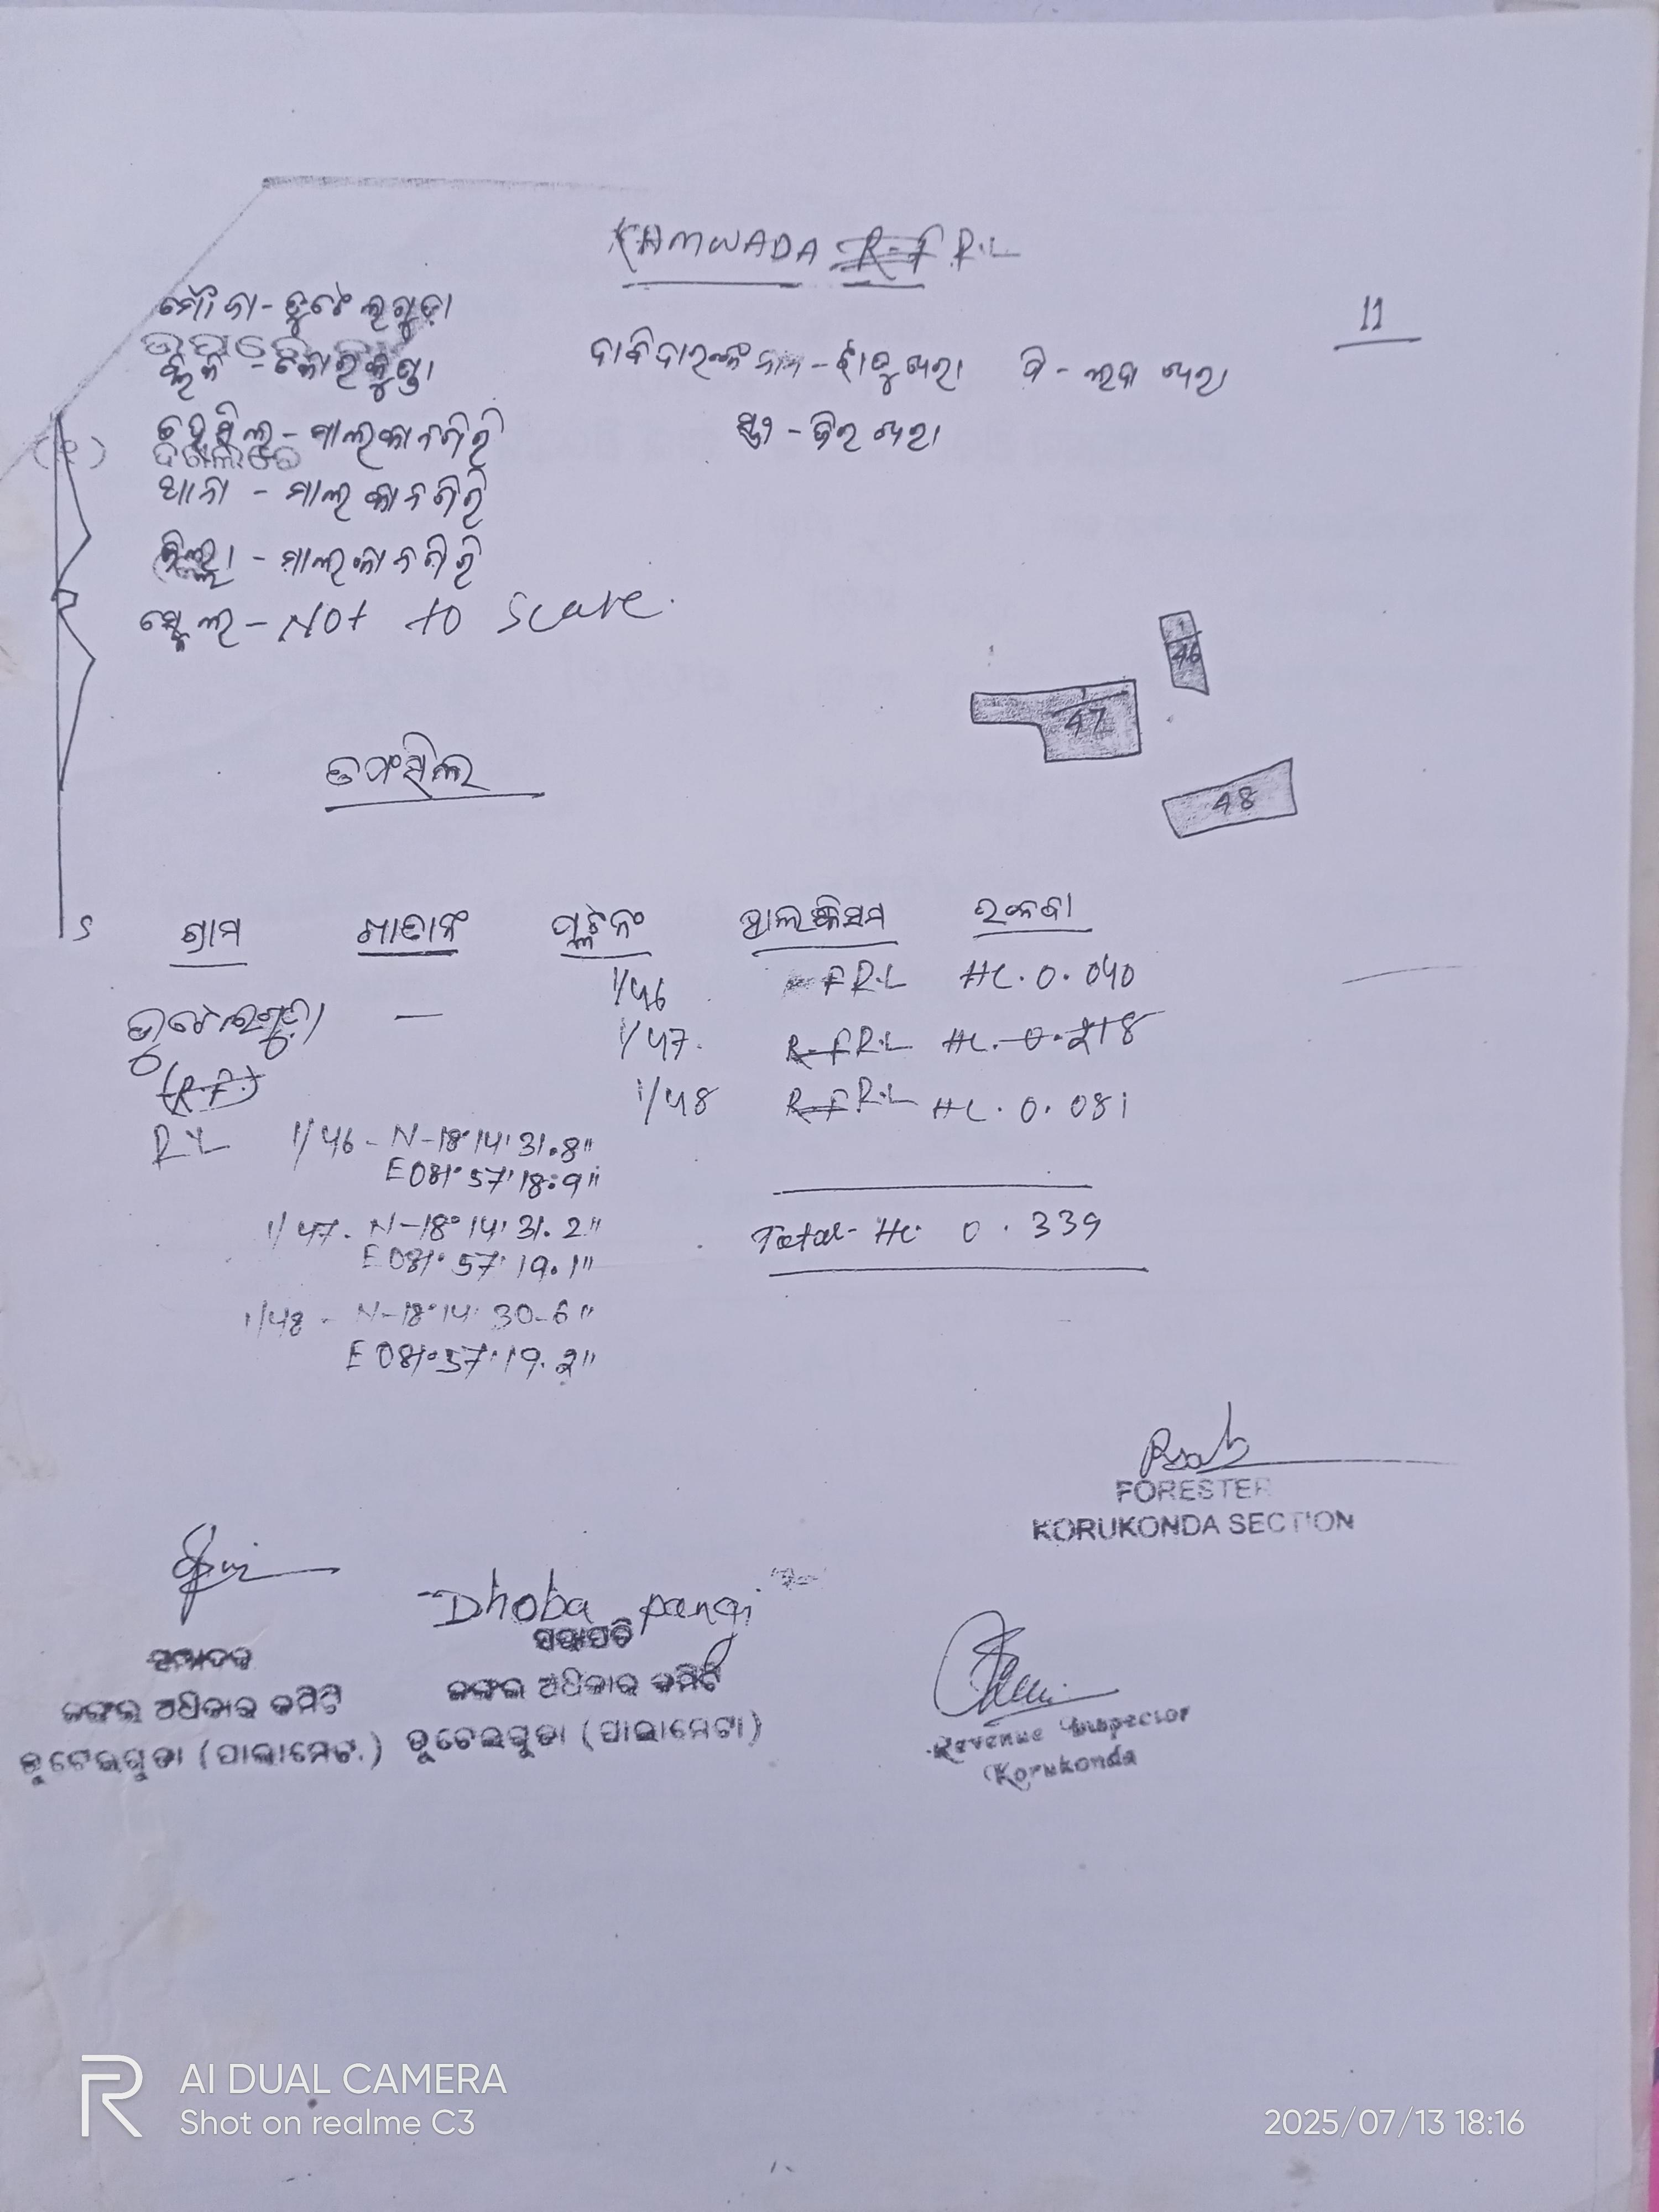 KHAMWADA R.F R.L
11
ମୌଜା - ଡୁଟେଲଗୁଡ଼ା
ଦାବିଦାରଙ୍କ ନାମ - ଝାଡୁ ଖରା ପି - ଲଦା ଖରା
ବ୍ଲକ - କୋରକୁଣ୍ଡା
ସ୍ତ୍ରୀ - ହିର ଖରା
ତହସିଲ - ମାଲକାନଗିରି
ଥାନା - ମାଲକାନଗିରି
ଜିଲ୍ଲା - ମାଲକାନଗିରି
ସ୍କେଲ - Not to Scale.
1
46
1
47
48
ତଫସିଲ
S
ଗ୍ରାମ ଖାତା ନଂ ପ୍ଲଟ ନଂ ହାଲ କିସମ ରକବା
1/46 F R.L HC. 0. 040
ଡୁଟେଲଗୁଡ଼ା — 1/47. R.F R.L HC. 0. 218
(R.F.) 1/48 R.F R.L HC. 0. 081
R.L 1/46 - N-18°14'31.8"
E081°57'18.9"
1/47. N-18°14'31.2"
E081°57'19.1"
Total- HC. 0.339
1/48 - N-18°14'30.6"
E081°57'19.2"
FORESTER
KORUKONDA SECTION
Dhoba pangi
ସମ୍ପାଦକ ସଭାପତି
ଜଙ୍ଗଲ ଅଧିକାର କମିଟି ଜଙ୍ଗଲ ଅଧିକାର କମିଟି
ଡୁଟେଲଗୁଡା (ପାଲାମେଟା) ଡୁଟେଲଗୁଡା (ପାଲାମେଟା)
Revenue Inspector
Korukonda
AI DUAL CAMERA
Shot on realme C3
2025/07/13 18:16